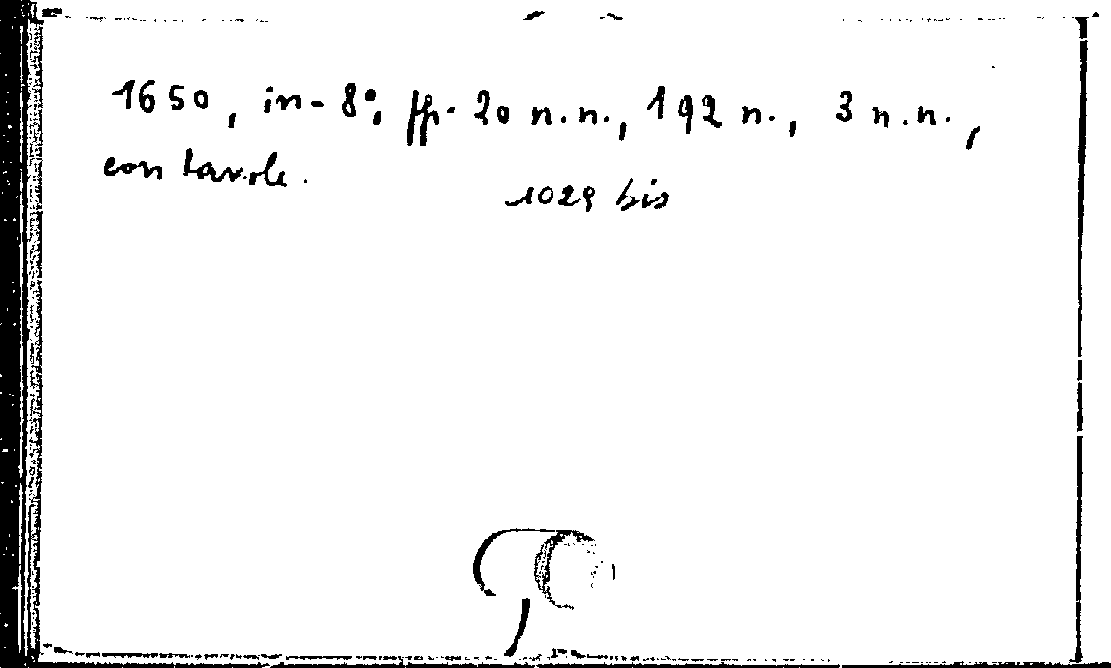 1650, in-8°, pp. 20 n.n., 192 n., 3 n.n.,
con tavole.
1029 bis